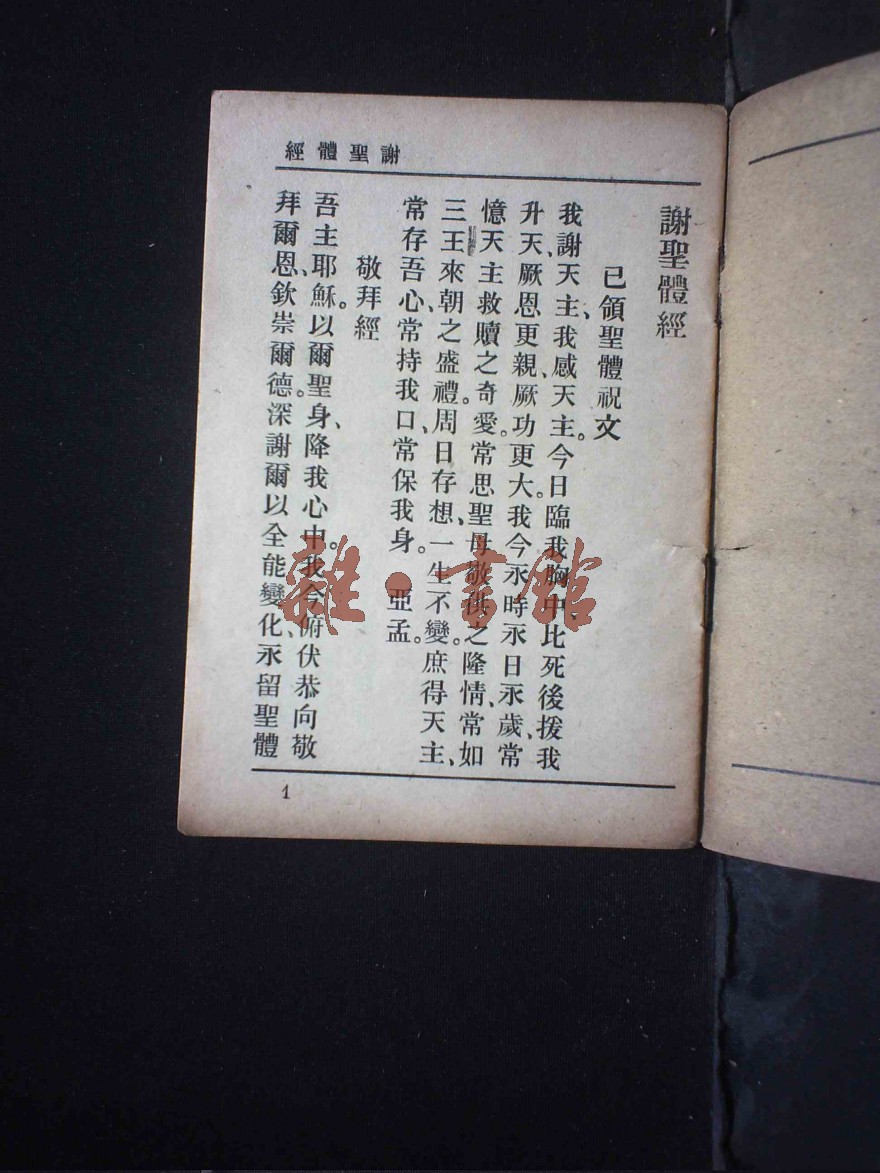 謝聖體經
謝聖體經
已領聖體祝文
我謝天主、我感天主。今日臨我胸中、比死後援我
升天、厥恩更親、厥功更大。我今永時永日永歲、常
憶天主救贖之奇愛。常思聖母敬供之隆情、常如
三王來朝之盛禮。周日存想、一生不變。庶得天主、
常存吾心、常持我口、常保我身。亞孟。
敬拜經
吾主耶穌。以爾聖身、降我心中。我今俯伏恭向敬
拜爾恩、欽崇爾德。深謝爾以全能變化、永留聖體
1
雜·書館